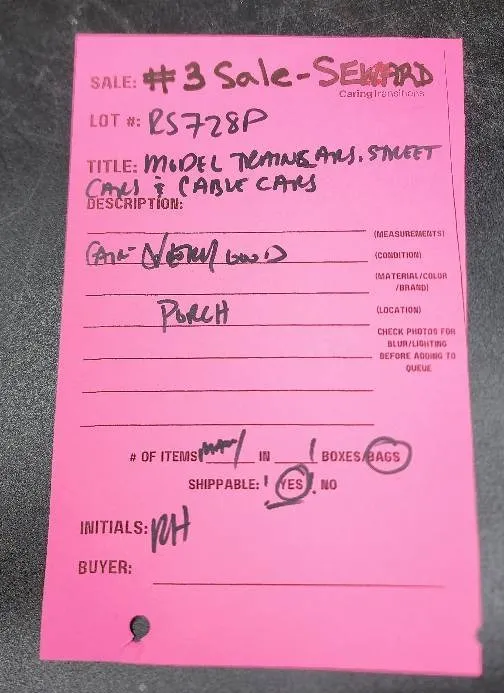 SALE: #3 Sale - SEWARD
Caring Transitions
LOT #: RS728P
TITLE: MODEL TRAIN CARS, STREET
CARS & CABLE CARS
DESCRIPTION:
(MEASUREMENTS)
FAIR - VERY GOOD (CONDITION)
(MATERIAL/COLOR
/BRAND)
PORCH (LOCATION)
CHECK PHOTOS FOR
BLUR/LIGHTING
BEFORE ADDING TO
QUEUE
# OF ITEMS MANY IN 1 BOXES/BAGS
SHIPPABLE: YES NO
INITIALS: RH
BUYER: